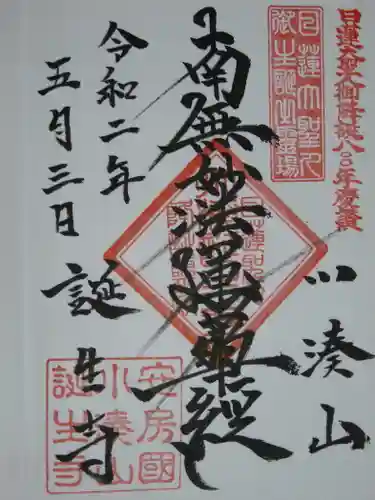 日蓮大聖人御降誕八〇〇年慶讃
日蓮大聖人
御生誕生霊場
小湊山
南無妙法蓮華経
令和二年
五月三日
誕生寺
安房國
小湊山
誕生寺